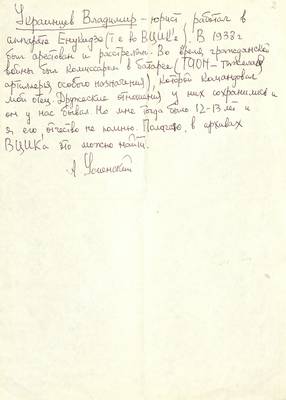 Украинцев Владимир – юрист работал в
аппарате Енукидзе (т.е. во ВЦИК'е). В 1938 г
был арестован и расстрелян. Во время гражданской
войны был комиссаром в батарее (ТАОН – тяжелая
артиллерия особого назначения), которой командовал
мой отец. Дружеские отношения у них сохранились и
он у нас бывал. Но мне тогда было 12-13 лет и
я его отчество не помню. Полагаю, в архивах
ВЦИКа это можно найти.
А. Успенский